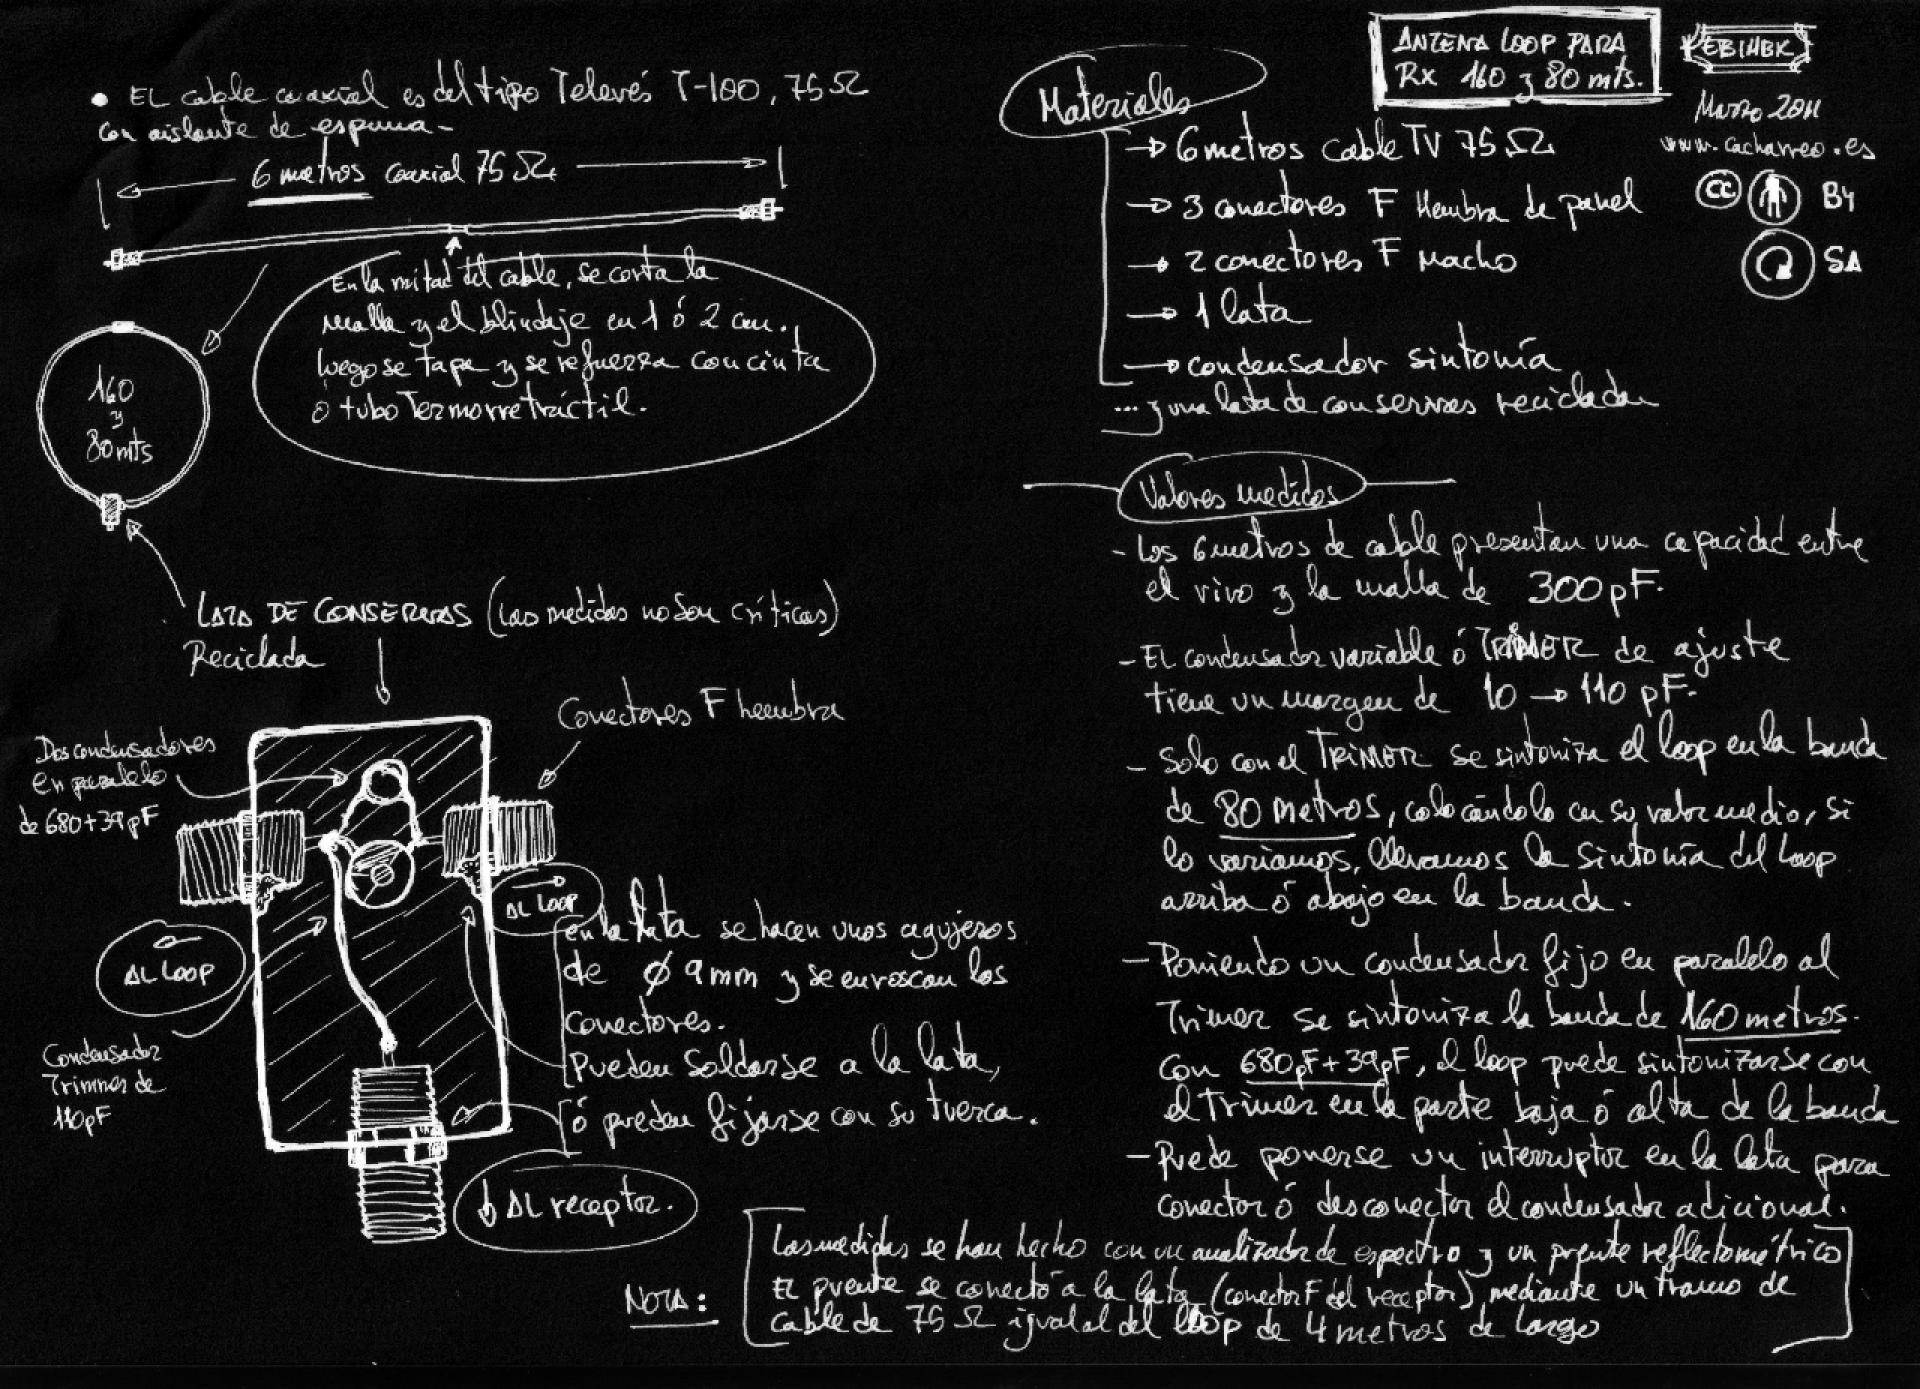 • EL cable coaxial es del tipo Televés T-100, 75Ω
con aislante de espuma-
6 metros coaxial 75Ω
En la mitad del cable, se corta la
malla y el blindaje en 1 ó 2 cm.,
luego se tapa y se refuerza con cinta
ó tubo Termorretráctil.
160
y
80mts
LATA DE CONSERVAS (Las medidas no son críticas)
Reciclada
Conectores F hembra
Dos condensadores
en paralelo
de 680+39pF
AL LOOP
AL LOOP
Condensador
Trimmer de
110pF
en la lata se hacen unos agujeros
de Ø 9mm y se enroscan los
conectores.
Pueden Soldarse a la lata,
ó pueden fijarse con su tuerca.
↓ AL receptor.
ANTENA LOOP PARA
RX 160 y 80 mts.
EB1HBK
Marzo 2011
www.cacharreo.es
CC BY
SA
Materiales
→ 6 metros cable TV 75Ω
→ 3 conectores F Hembra de panel
→ 2 conectores F Macho
→ 1 lata
→ condensador sintonía
... y una lata de conservas reciclada
Valores medidos
- Los 6 metros de cable presentan una capacidad entre
el vivo y la malla de 300pF.
- El condensador variable ó TRIMER de ajuste
tiene un margen de 10 → 110 pF.
- Solo con el TRIMER se sintoniza el loop en la banda
de 80 metros, colocándolo en su valor medio, si
lo variamos, llevamos la sintonía del Loop
arriba ó abajo en la banda.
- Poniendo un condensador fijo en paralelo al
Trimer se sintoniza la banda de 160 metros.
Con 680pF+39pF, el loop puede sintonizarse con
el Trimer en la parte baja ó alta de la banda
- Puede ponerse un interruptor en la lata para
conectar ó desconectar el condensador adicional.
NOTA:
Las medidas se han hecho con un analizador de espectro y un puente reflectométrico
El puente se conectó a la lata (conector F del receptor) mediante un tramo de
cable de 75Ω igual al del loop de 4 metros de largo